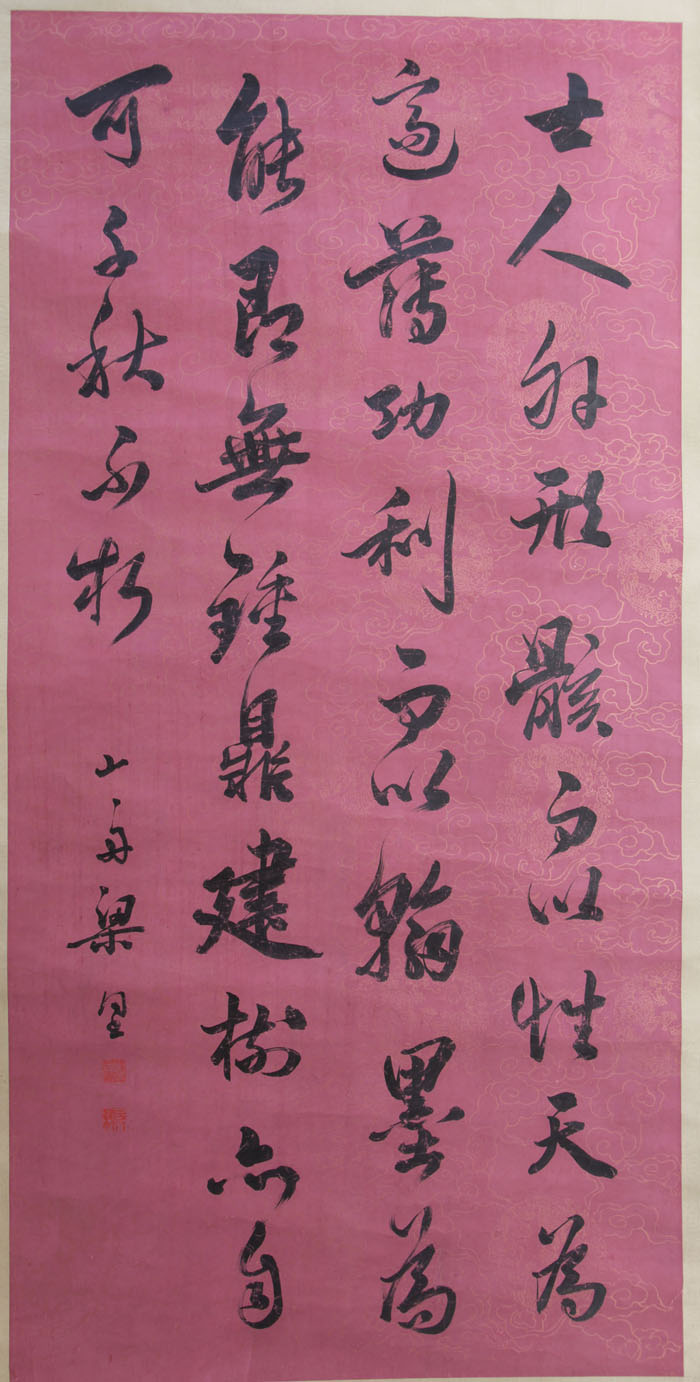 士人外形骸而以性天為
適薄功利而以翰墨為
能即無鍾鼎建樹亦自
可千秋不朽
山舟梁